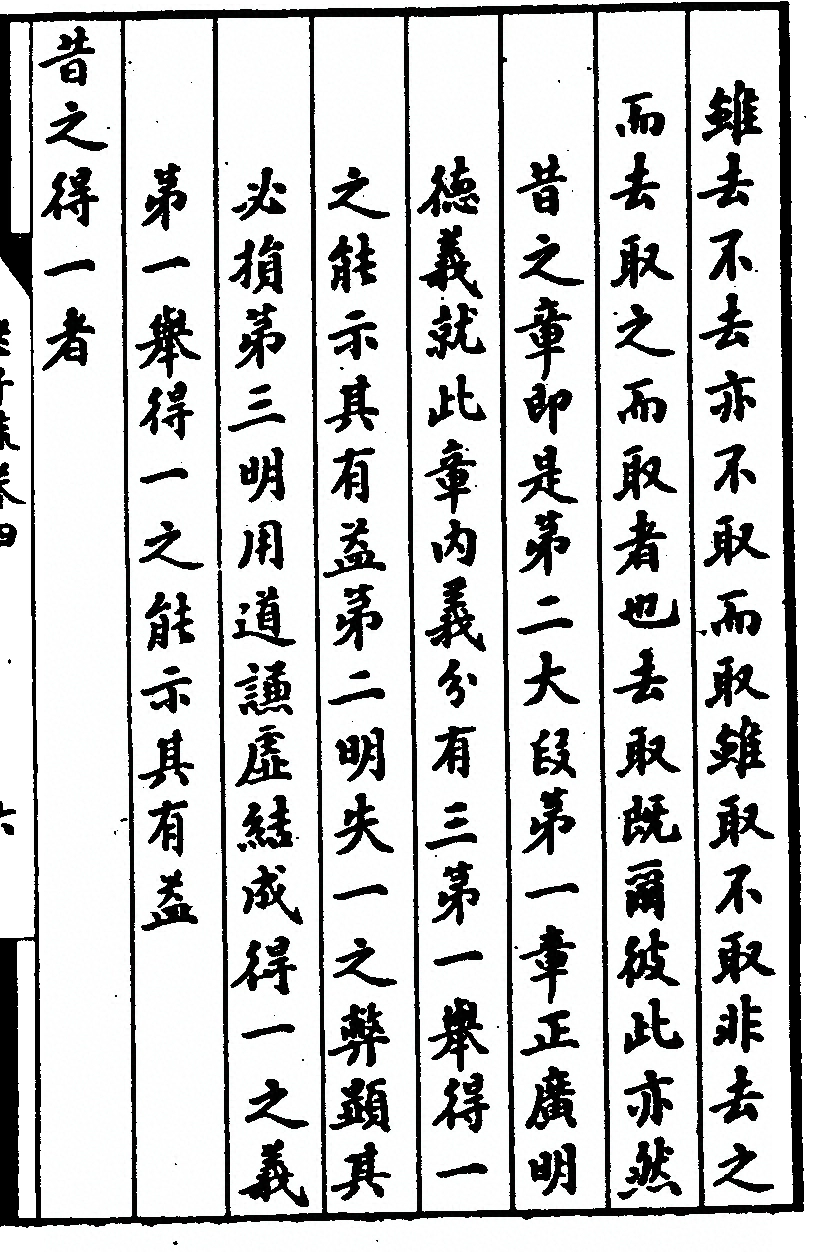 雖去不去亦不取而取雖取不取非去之
而去取之而取者也去取既爾彼此亦然
昔之章即是第二大段第一章正廣明
德義就此章內義分有三第一舉得一
之能示其有益第二明失一之弊顯其
必損第三明用道謙虛結成得一之義
第一舉得一之能示其有益
昔之得一者